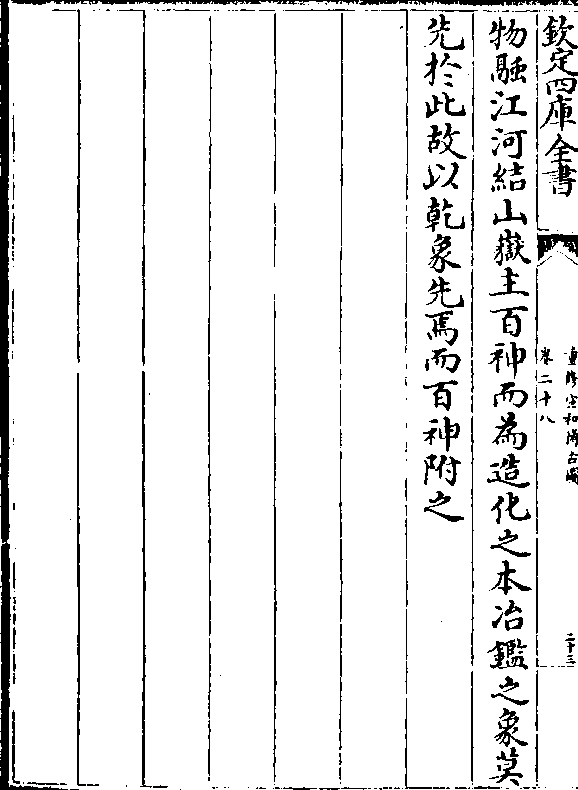 欽定四庫全書
重修宣和博古圖
卷二十八
二十三
物融江河結山嶽主百神而為造化之本冶鑑之象莫
先於此故以乾象先焉而百神附之